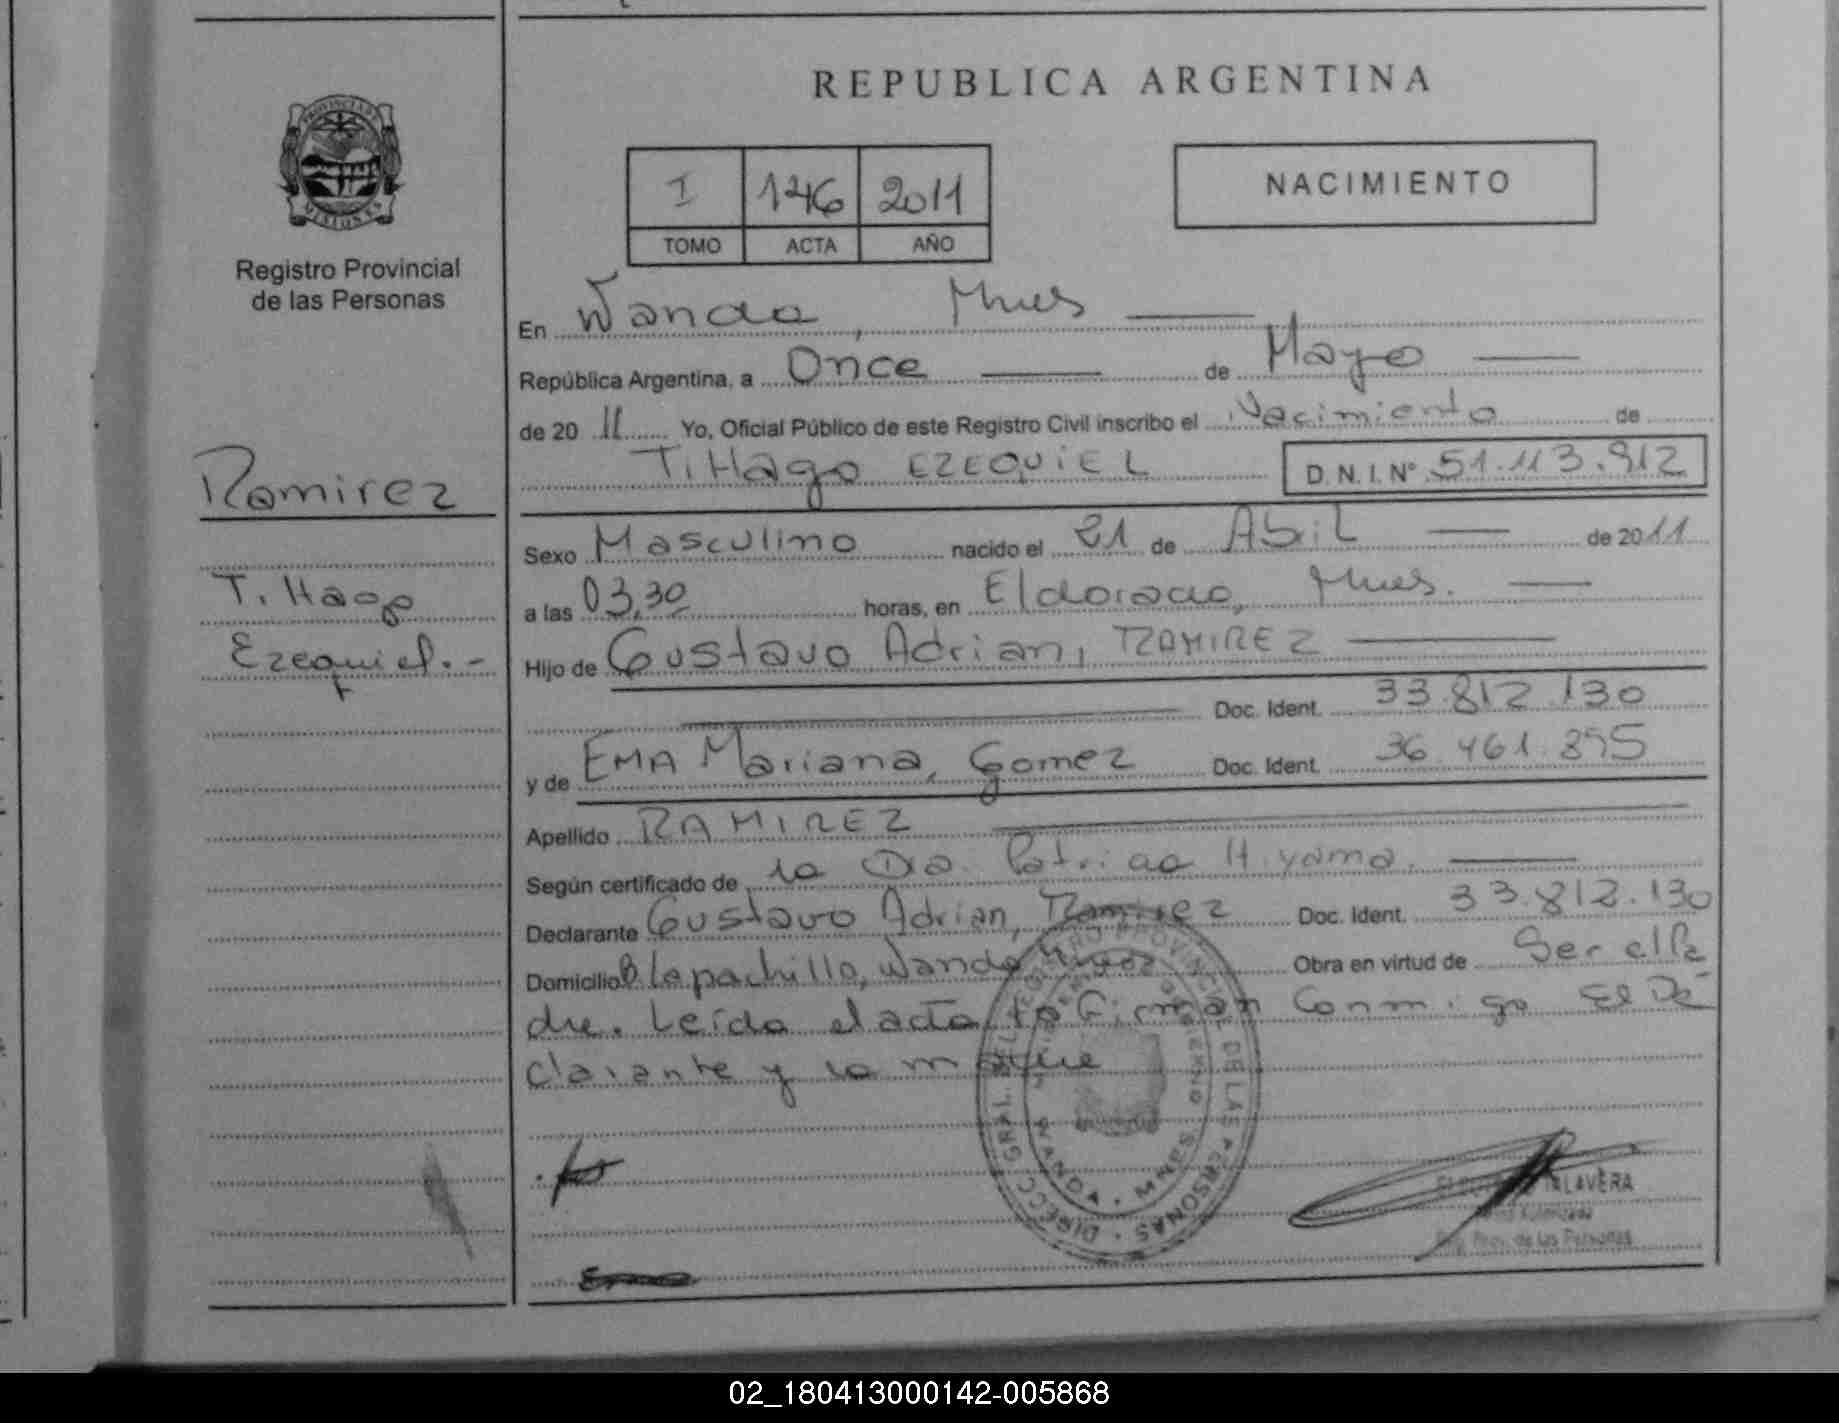 REPUBLICA ARGENTINA
PROVINCIA DE
MISIONES
Registro Provincial
de las Personas
I 146 2011
TOMO ACTA AÑO
NACIMIENTO
En Wanda, Mnes
República Argentina, a Once de Mayo
de 2011 Yo, Oficial Público de este Registro Civil inscribo el Nacimiento de
T.Hago EZEQUIEL D.N.I.N° 51.113.912
Ramirez
T.Hago
Ezequiel.-
Sexo Masculino nacido el 21 de Abril de 2011
a las 03,30 horas, en Eldorado, Mnes.
Hijo de Gustavo Adrian, RAMIREZ
Doc. Ident. 33.812.130
y de EMA Mariana, Gomez Doc. Ident. 36.461.895
Apellido RAMIREZ
Según certificado de la Dra. Patricia Hiyama.
Declarante Gustavo Adrian, Ramirez Doc. Ident. 33.812.130
Domicilio B Lapachillo, Wanda Mnes Obra en virtud de Ser el Pa
dre. Leida el acta la Firman Conmigo El De
clarante y la madre
DIRECC. GRAL. DEL REGISTRO PROVINCIAL DE LAS PERSONAS
WANDA - MNES
TALAVERA
Reg. Prov. de las Personas
02_180413000142-005868